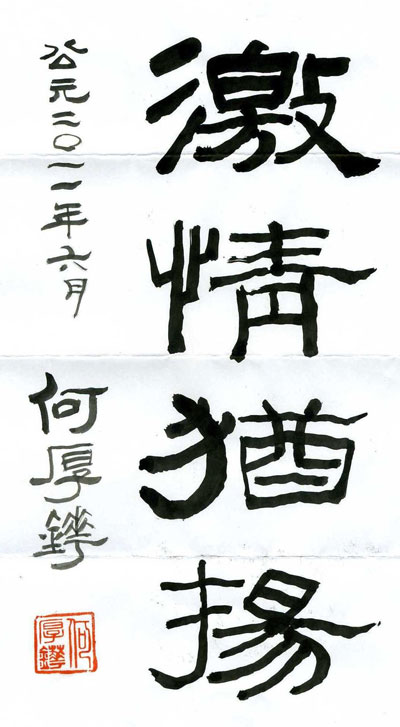 激情猶揚
公元二〇一一年六月
何厚鏵
何厚鏵